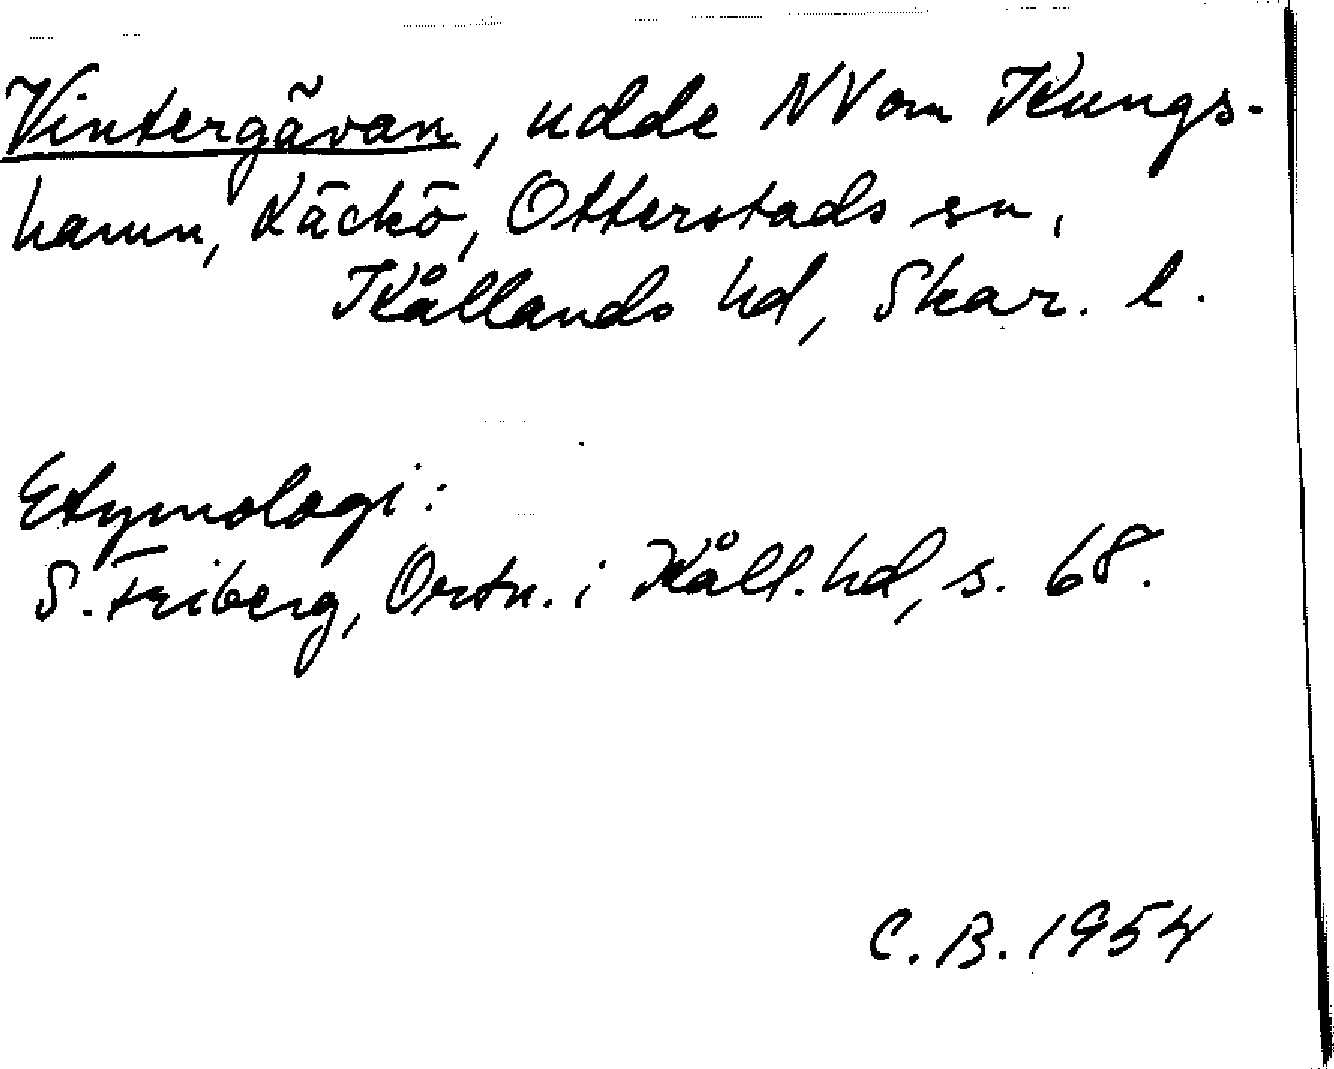 Vintergävan, udde NV om Kungs-
hamn, Läckö, Otterstads sn,
Kållands hd, Skar. l.
Etymologi:
S. Friberg, Ortn. i Kåll. hd, s. 68.
C. B. 1954